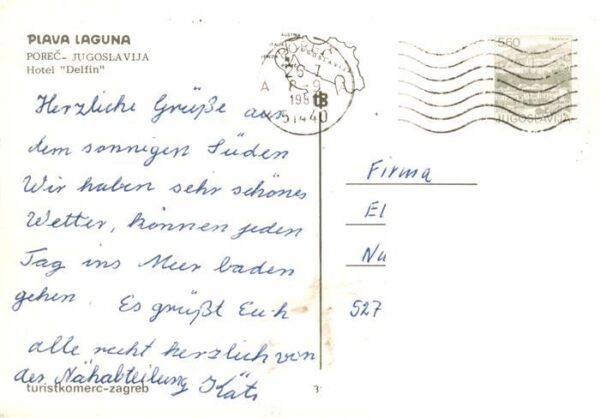 PLAVA LAGUNA
POREČ- JUGOSLAVIJA
Hotel "Delfin"
Herzliche Grüße aus
dem sonnigen Süden
Wir haben sehr schönes
Wetter, können jeden
Tag ins Meer baden
gehen. Es grüßt Euch
alle recht herzlich von
der Nähabteilung Käti
turistkomerc-zagreb
POREČ
51440
5,60
JUGOSLAVIJA
Firma
El
Nu
527